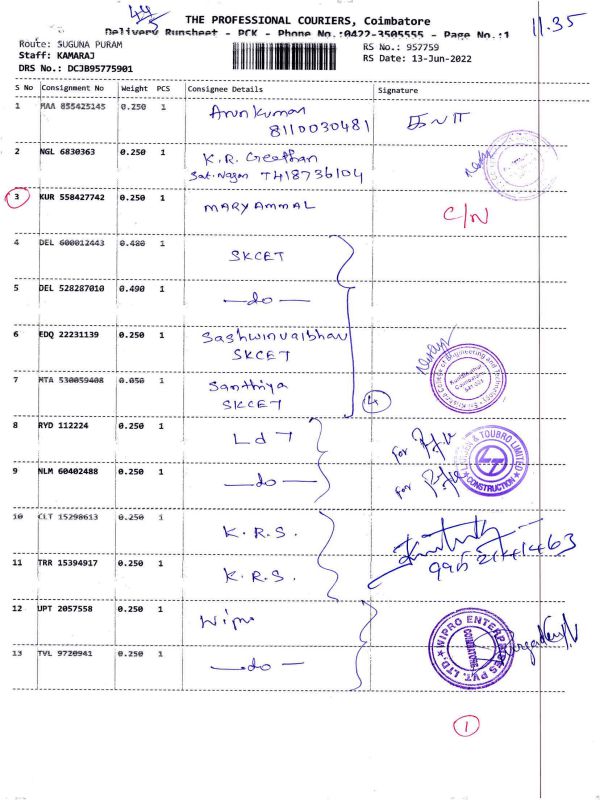 44/5
11.35
THE PROFESSIONAL COURIERS, Coimbatore
Delivery Runsheet - PCK - Phone No.:0422-3505555 - Page No.:1
Route: SUGUNA PURAM
Staff: KAMARAJ
DRS No.: DCJB95775901
RS No.: 957759
RS Date: 13-Jun-2022
S No Consignment No Weight PCS Consignee Details Signature
1 MAA 855425145 0.250 1 Arun kumar
8110030481
2 NGL 6830363 0.250 1 K.R. Geethan
Sat. Nagar 7418736104
3 KUR 558427742 0.250 1 MARY AMMAL C/N
4 DEL 600012443 0.480 1 SKCET
5 DEL 528287010 0.490 1 —do—
6 EDQ 22231139 0.250 1 Sashwinvaibhav
SKCET
7 MTA 530059408 0.050 1 Santhiya
SKCET
4
8 RYD 112224 0.250 1 L&T for
9 NLM 60402488 0.250 1 —do— for
& TOUBRO LIMITED
LT
CONSTRUCTION
10 CLT 15298613 0.250 1 K.R.S.
11 TRR 15394917 0.250 1 K.R.S.
12 UPT 2057558 0.250 1 Wipro
13 TVL 9720941 0.250 1 —do—
WIPRO ENTERPRISES PVT. LTD.
COIMBATORE
1